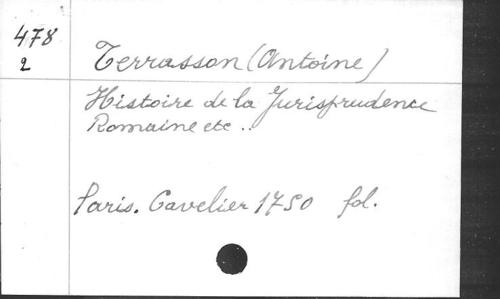 478
2
Terrasson (Antoine)
Histoire de la Jurisprudence
Romaine etc..
Paris. Cavelier 1750 fol.